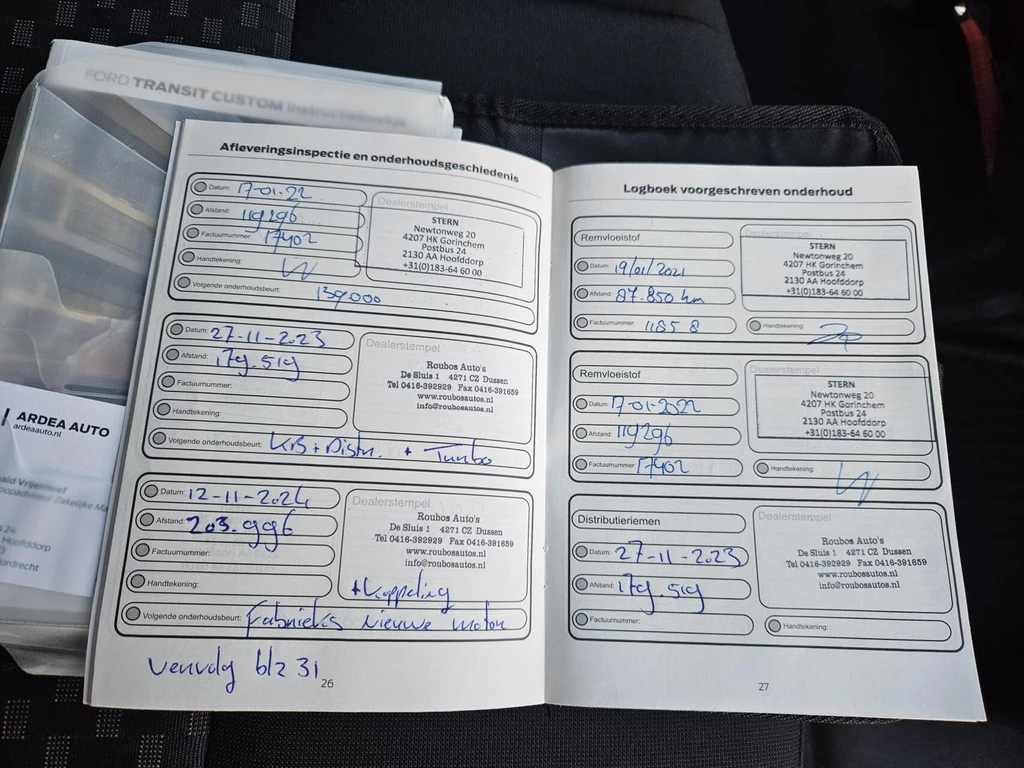 FORD TRANSIT CUSTOM Instructieboekje
ARDEA AUTO
ardeaauto.nl
ald Vrijenhoef
oopadviseur Zakelijke Ma
s 24
Hoofddorp
ordrecht
Afleveringsinspectie en onderhoudsgeschiedenis
Datum: 17-01-22
Afstand: 119296
Factuurnummer: 17402
Handtekening:
Volgende onderhoudsbeurt: 139.000
Dealerstempel
STERN
Newtonweg 20
4207 HK Gorinchem
Postbus 24
2130 AA Hoofddorp
+31(0)183-64 60 00
Datum: 27-11-2023
Afstand: 179.519
Factuurnummer:
Handtekening:
Volgende onderhoudsbeurt: KB + Distr. + Turbo
Dealerstempel
Roubos Auto's
De Sluis 1 4271 CZ Dussen
Tel 0416-392929 Fax 0416-391659
www.roubosautos.nl
info@roubosautos.nl
Datum: 12-11-2024
Afstand: 203.996
Factuurnummer:
Handtekening:
Volgende onderhoudsbeurt: Fabrieks nieuwe motor
+ Koppeling
Dealerstempel
Roubos Auto's
De Sluis 1 4271 CZ Dussen
Tel 0416-392929 Fax 0416-391659
www.roubosautos.nl
info@roubosautos.nl
vervolg blz 31
26
Logboek voorgeschreven onderhoud
Remvloeistof
Datum: 19/01/2021
Afstand: 87.850 km
Factuurnummer: 11858
Dealerstempel
STERN
Newtonweg 20
4207 HK Gorinchem
Postbus 24
2130 AA Hoofddorp
+31(0)183-64 60 00
Handtekening:
Remvloeistof
Datum: 17-01-2022
Afstand: 119296
Factuurnummer: 17402
Dealerstempel
STERN
Newtonweg 20
4207 HK Gorinchem
Postbus 24
2130 AA Hoofddorp
+31(0)183-64 60 00
Handtekening:
Distributieriemen
Datum: 27-11-2023
Afstand: 179.519
Factuurnummer:
Dealerstempel
Roubos Auto's
De Sluis 1 4271 CZ Dussen
Tel 0416-392929 Fax 0416-391659
www.roubosautos.nl
info@roubosautos.nl
Handtekening:
27